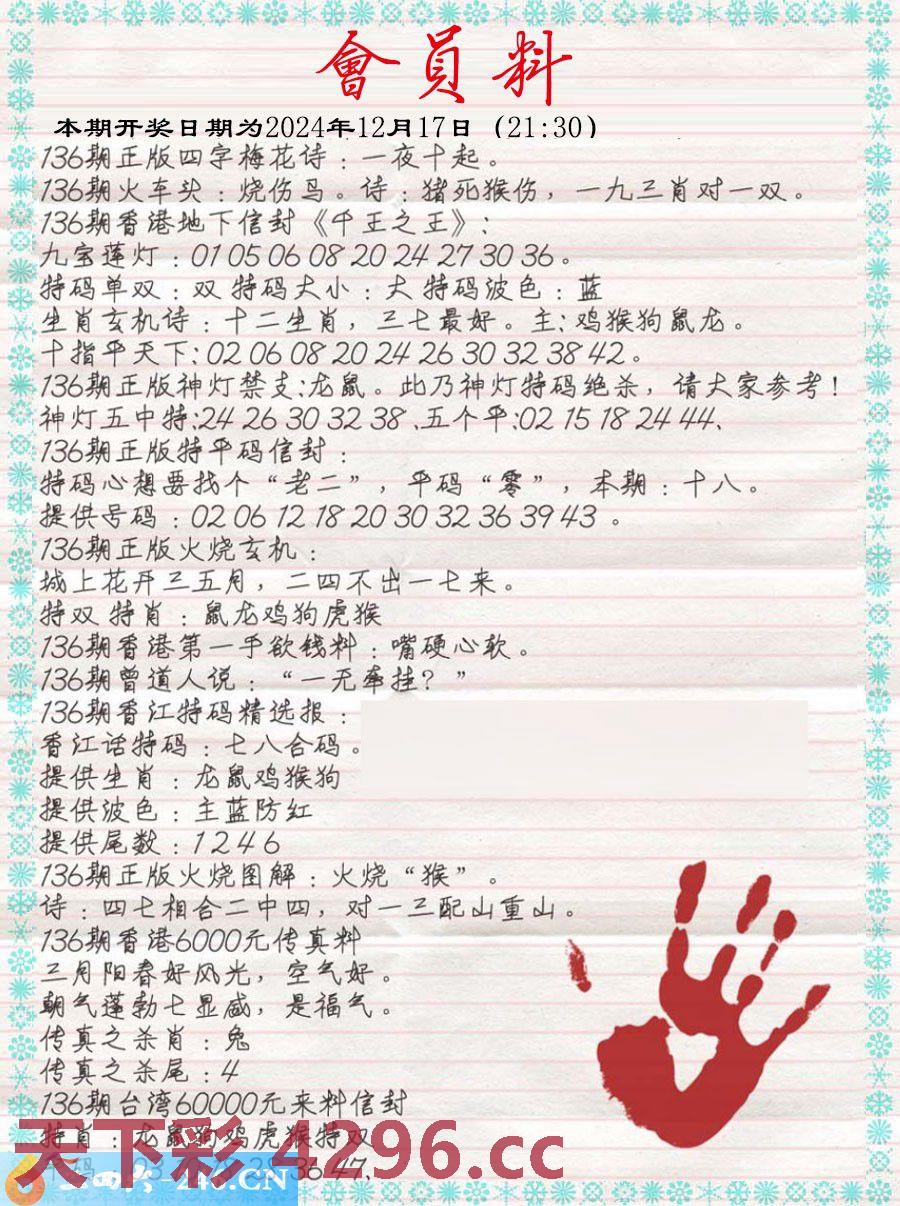 會員料
本期开奖日期为2024年12月17日（21:30）
136期正版四字梅花诗：一夜十起。
136期火车头：烧伤鸟。诗：猪死猴伤，一九三肖对一双。
136期香港地下信封《千王之王》：
九宝莲灯：01 05 06 08 20 24 27 30 36。
特码单双：双 特码大小：大 特码波色：蓝
生肖玄机诗：十二生肖，三七最好。主：鸡猴狗鼠龙。
十指平天下：02 06 08 20 24 26 30 32 38 42。
136期正版神灯禁支：龙鼠。此乃神灯特码绝杀，请大家参考！
神灯五中特：24 26 30 32 38、五个平：02 15 18 24 44、
136期正版特平码信封：
特码心想要找个“老二”，平码“零”，本期：十八。
提供号码：02 06 12 18 20 30 32 36 39 43 。
136期正版火烧玄机：
城上花开三五月，二四不出一七来。
特双 特肖：鼠龙鸡狗虎猴
136期香港第一手欲钱料：嘴硬心软。
136期曾道人说：“一无牵挂？”
136期香江特码精选报：
香江话特码：七八合码。
提供生肖：龙鼠鸡猴狗
提供波色：主蓝防红
提供尾数：1 2 4 6
136期正版火烧图解：火烧“猴”。
诗：四七相合二中四，对一三配山重山。
136期香港6000元传真料
三月阳春好风光，空气好。
朝气蓬勃七显威，是福气。
传真之杀肖：兔
传真之杀尾：4
136期台湾60000元来料信封
特肖：龙鼠狗鸡虎猴特双
天下彩.4296.cc
36 47、
246.CN